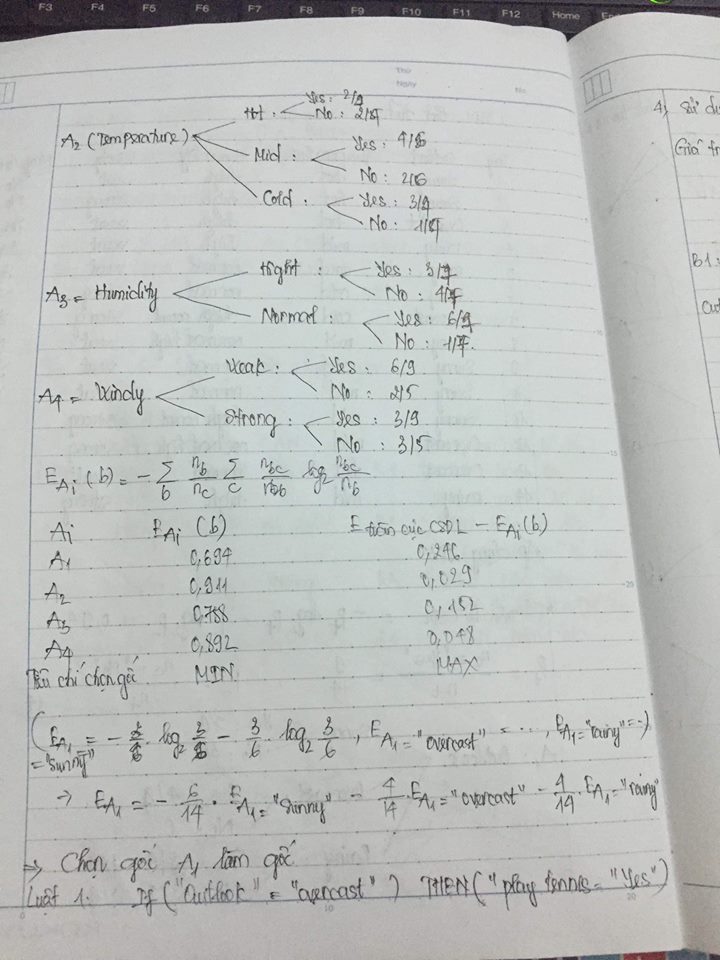 F3 F4 F5 F6 F7 F8 F9 F10 F11 F12 Home
Thứ
Ngày
No
Hot : Yes : 2/9
No : 2/5
A2 (Temperature)
Mid : Yes : 4/6
No : 2/6
Cold : Yes : 3/9
No : 1/5
A3 = Humidity
Hight : Yes : 3/9
No : 4/7
Normal : Yes : 6/9
No : 1/7
A4 = Windy
Weak : Yes : 6/9
No : 2/5
Strong : Yes : 3/9
No : 3/5
E_Ai (b) = - Σ_b n_b/n_c Σ_c n_bc/n_b log2 n_bc/n_b
Ai E_Ai (b) E toàn cục CSDL - E_Ai (b)
A1 0,694 0,246
A2 0,911 0,029
A3 0,788 0,152
A4 0,892 0,048
Tiêu chí chọn gốc MIN MAX
(E_A1 = "sunny" = - 3/6 . log2 3/6 - 3/6 . log2 3/6 , E_A1 = "overcast" = ... , E_A1 = "rainy" = ...)
→ E_A1 = - 6/14 . E_A1 = "sunny" - 4/14 . E_A1 = "overcast" - 4/14 . E_A1 = "rainy"
⇒ Chọn gốc A1 làm gốc
Luật 1: If ("Outlook" = "overcast") THEN ("play tennis = "Yes")
4, Sử dụ
Giá tr
B1:
Out